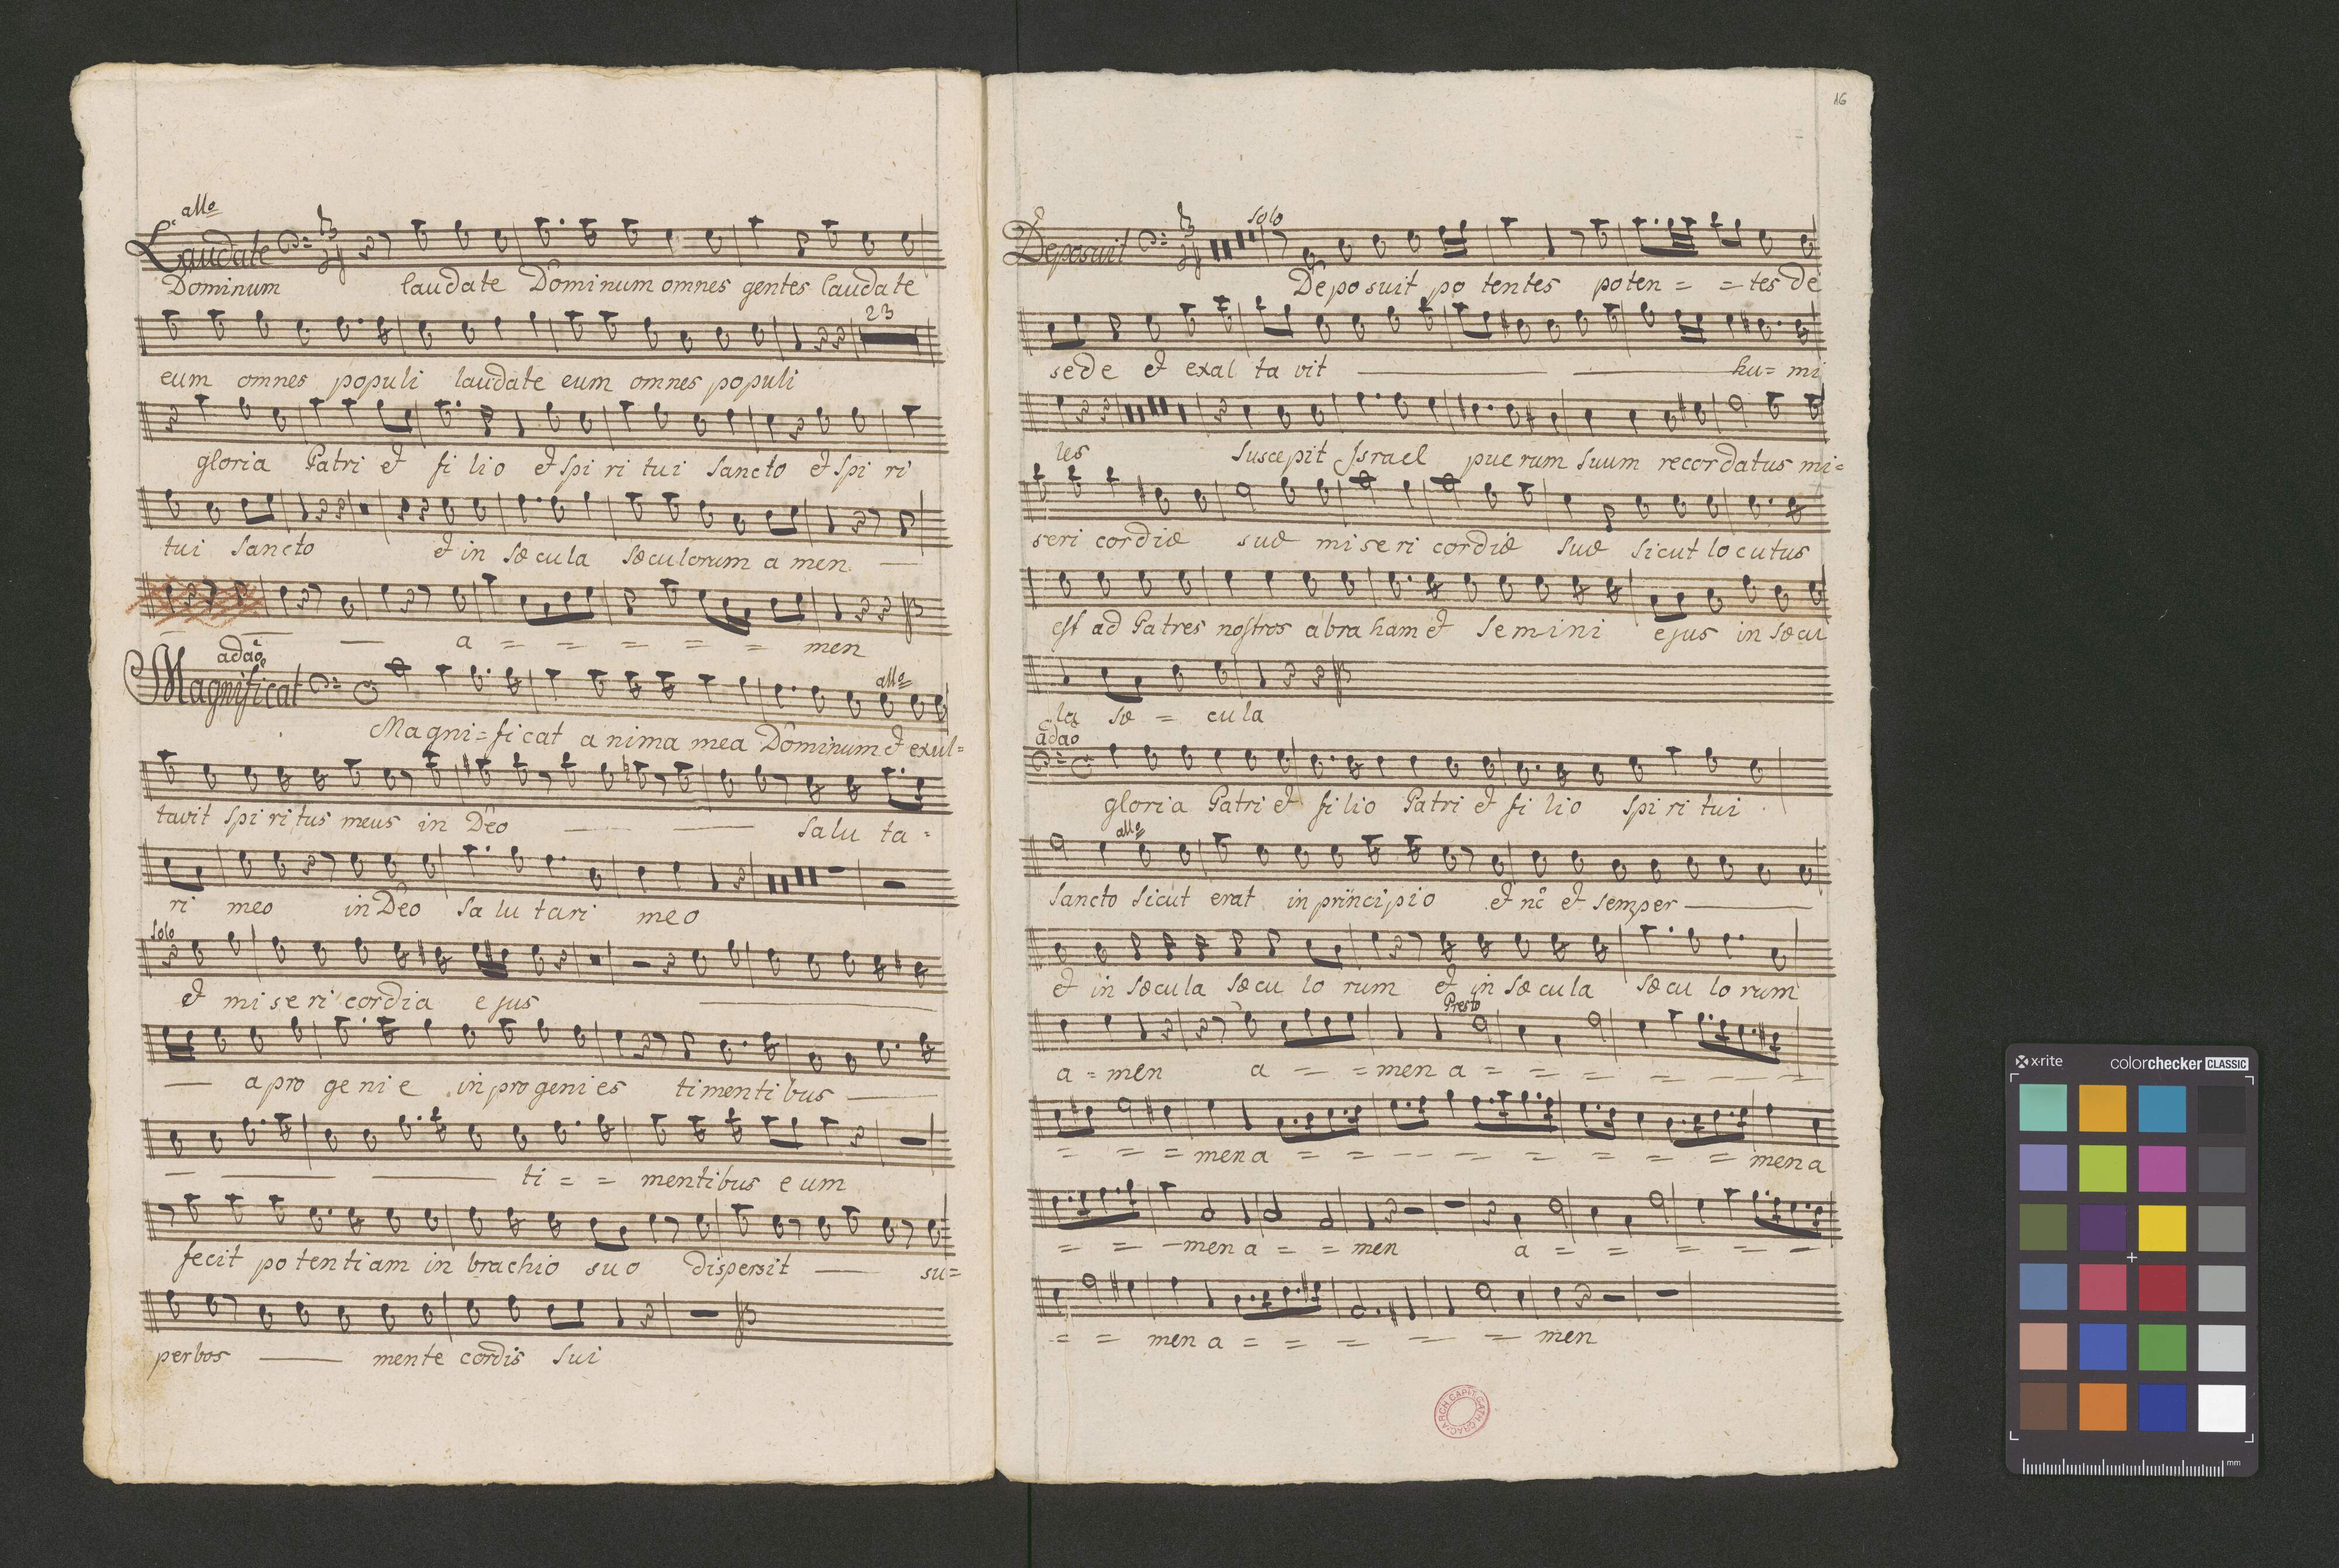 allo
Laudate
Dominum laudate Dominum omnes gentes laudate
23
eum omnes populi laudate eum omnes populi
gloria Patri et fi lio et spi ri tui sancto et spi ri
tui sancto et in sæ cu la sæculorum a men
a = = = = = men
adaõ
Magnificat
allo
Magni=ficat a nima mea Dominum et exul=
tavit spi ri tus meus in Deo salu ta=
ri meo in Deo sa lu tari meo
solo
et mi se ri cordia e jus
a pro ge ni e in pro geni es timenti bus
ti = = mentibus e um
fecit po ten ti am in brachio su o dispersit su=
perbos mente cordis sui
16
Deposuit
solo
De po suit po tentes poten = = tes de
sede et exal ta vit hu= mi
les suscepit Israel pue rum suum recordatus mi=
seri cordiæ suæ mi se ri cordiæ suæ sicut lo cutus
est ad Patres nostros abra ham et se mi ni e jus in sæcu
la sæ = cu la
adaõ
gloria Patri et fi lio Patri et fi lio spi ri tui
allo
sancto sicut erat in principio et nc̃ et semper
et in sæcula sæcu lo rum et in sæ cu la sæ cu lo rum
Presto
a = men a = = men a = = = = =
= = = men a = = = = = = = = men a
= = - men a = = men a = = = = =
= = men a = = = = = men
ARCH. CAPIT. CATH. CRAC.
x-rite colorchecker CLASSIC
mm